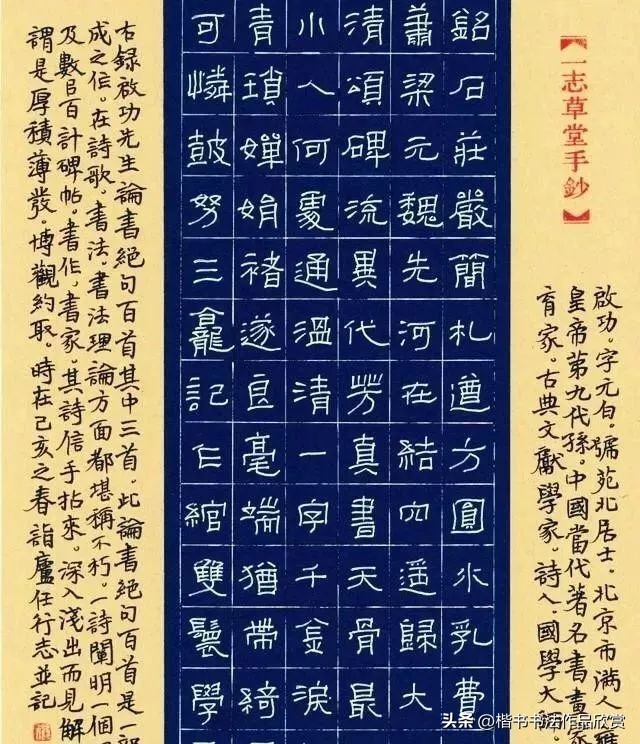 【一志草堂手鈔】
啟功。字元白。號苑北居士。北京市滿人雍
皇帝第九代孫。中國當代著名書畫家
育家。古典文獻學家。詩人。國學大師
銘石莊嚴簡札遒方圓水乳費
蕭梁元魏先河在結穴遥歸大
清頌碑流異代芳真書天骨最
小人何處通溫清一字千金淚
青瑣嬋娟褚遂良毫端猶帶綺
可憐鼓努三龕記仍綰雙鬟學
右錄啟功先生論書絕句百首其中三首。此論書絕句百首是一部
成之作。在詩歌。書法。書法理論方面都堪稱不朽。一詩闡明一個
及數百計碑帖。書作。書家。其詩信手拈來。深入淺出而見解
謂是厚積薄發。博觀約取。時在己亥之春詣廬任行志並記
头条 @楷书书法作品欣赏